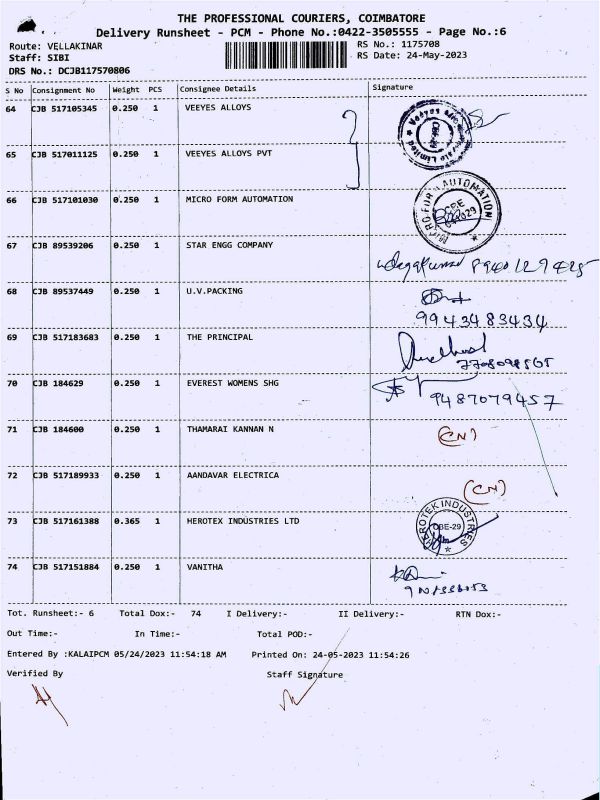 THE PROFESSIONAL COURIERS, COIMBATORE
Delivery Runsheet - PCM - Phone No.:0422-3505555 - Page No.:6
Route: VELLAKINAR
RS No.: 1175708
Staff: SIBI
RS Date: 24-May-2023
DRS No.: DCJB117570806
S No Consignment No Weight PCS Consignee Details Signature
64 CJB 517105345 0.250 1 VEEYES ALLOYS
65 CJB 517011125 0.250 1 VEEYES ALLOYS PVT
66 CJB 517101030 0.250 1 MICRO FORM AUTOMATION
67 CJB 89539206 0.250 1 STAR ENGG COMPANY
68 CJB 89537449 0.250 1 U.V.PACKING
9943483434
69 CJB 517183683 0.250 1 THE PRINCIPAL
70 CJB 184629 0.250 1 EVEREST WOMENS SHG
9487079457
71 CJB 184600 0.250 1 THAMARAI KANNAN N
(CN)
72 CJB 517189933 0.250 1 AANDAVAR ELECTRICA
(CN)
73 CJB 517161388 0.365 1 HEROTEX INDUSTRIES LTD
HEROTEK INDUSTRIES
CBE-29
74 CJB 517151884 0.250 1 VANITHA
Tot. Runsheet:- 6 Total Dox:- 74 I Delivery:- II Delivery:- RTN Dox:-
Out Time:- In Time:- Total POD:-
Entered By :KALAIPCM 05/24/2023 11:54:18 AM Printed On: 24-05-2023 11:54:26
Verified By Staff Signature